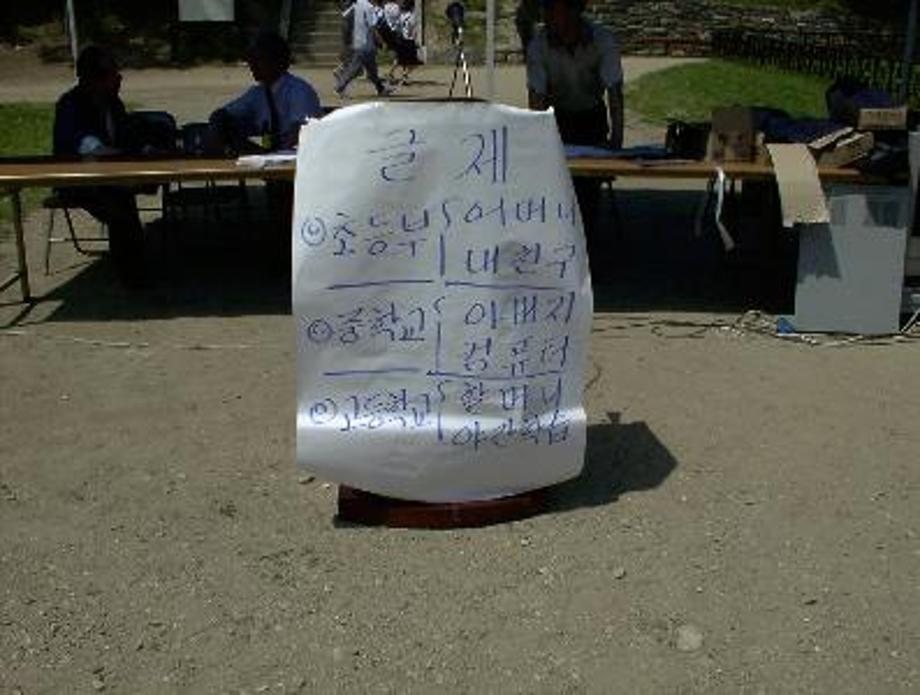 글 제
초등부 어머니
내 친구
중학교 아버지
컴퓨터
고등학교 할머니
야간학습